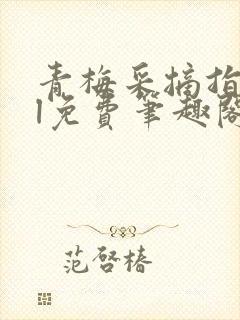 青梅采摘指
l免费笔趣阁
范启椿